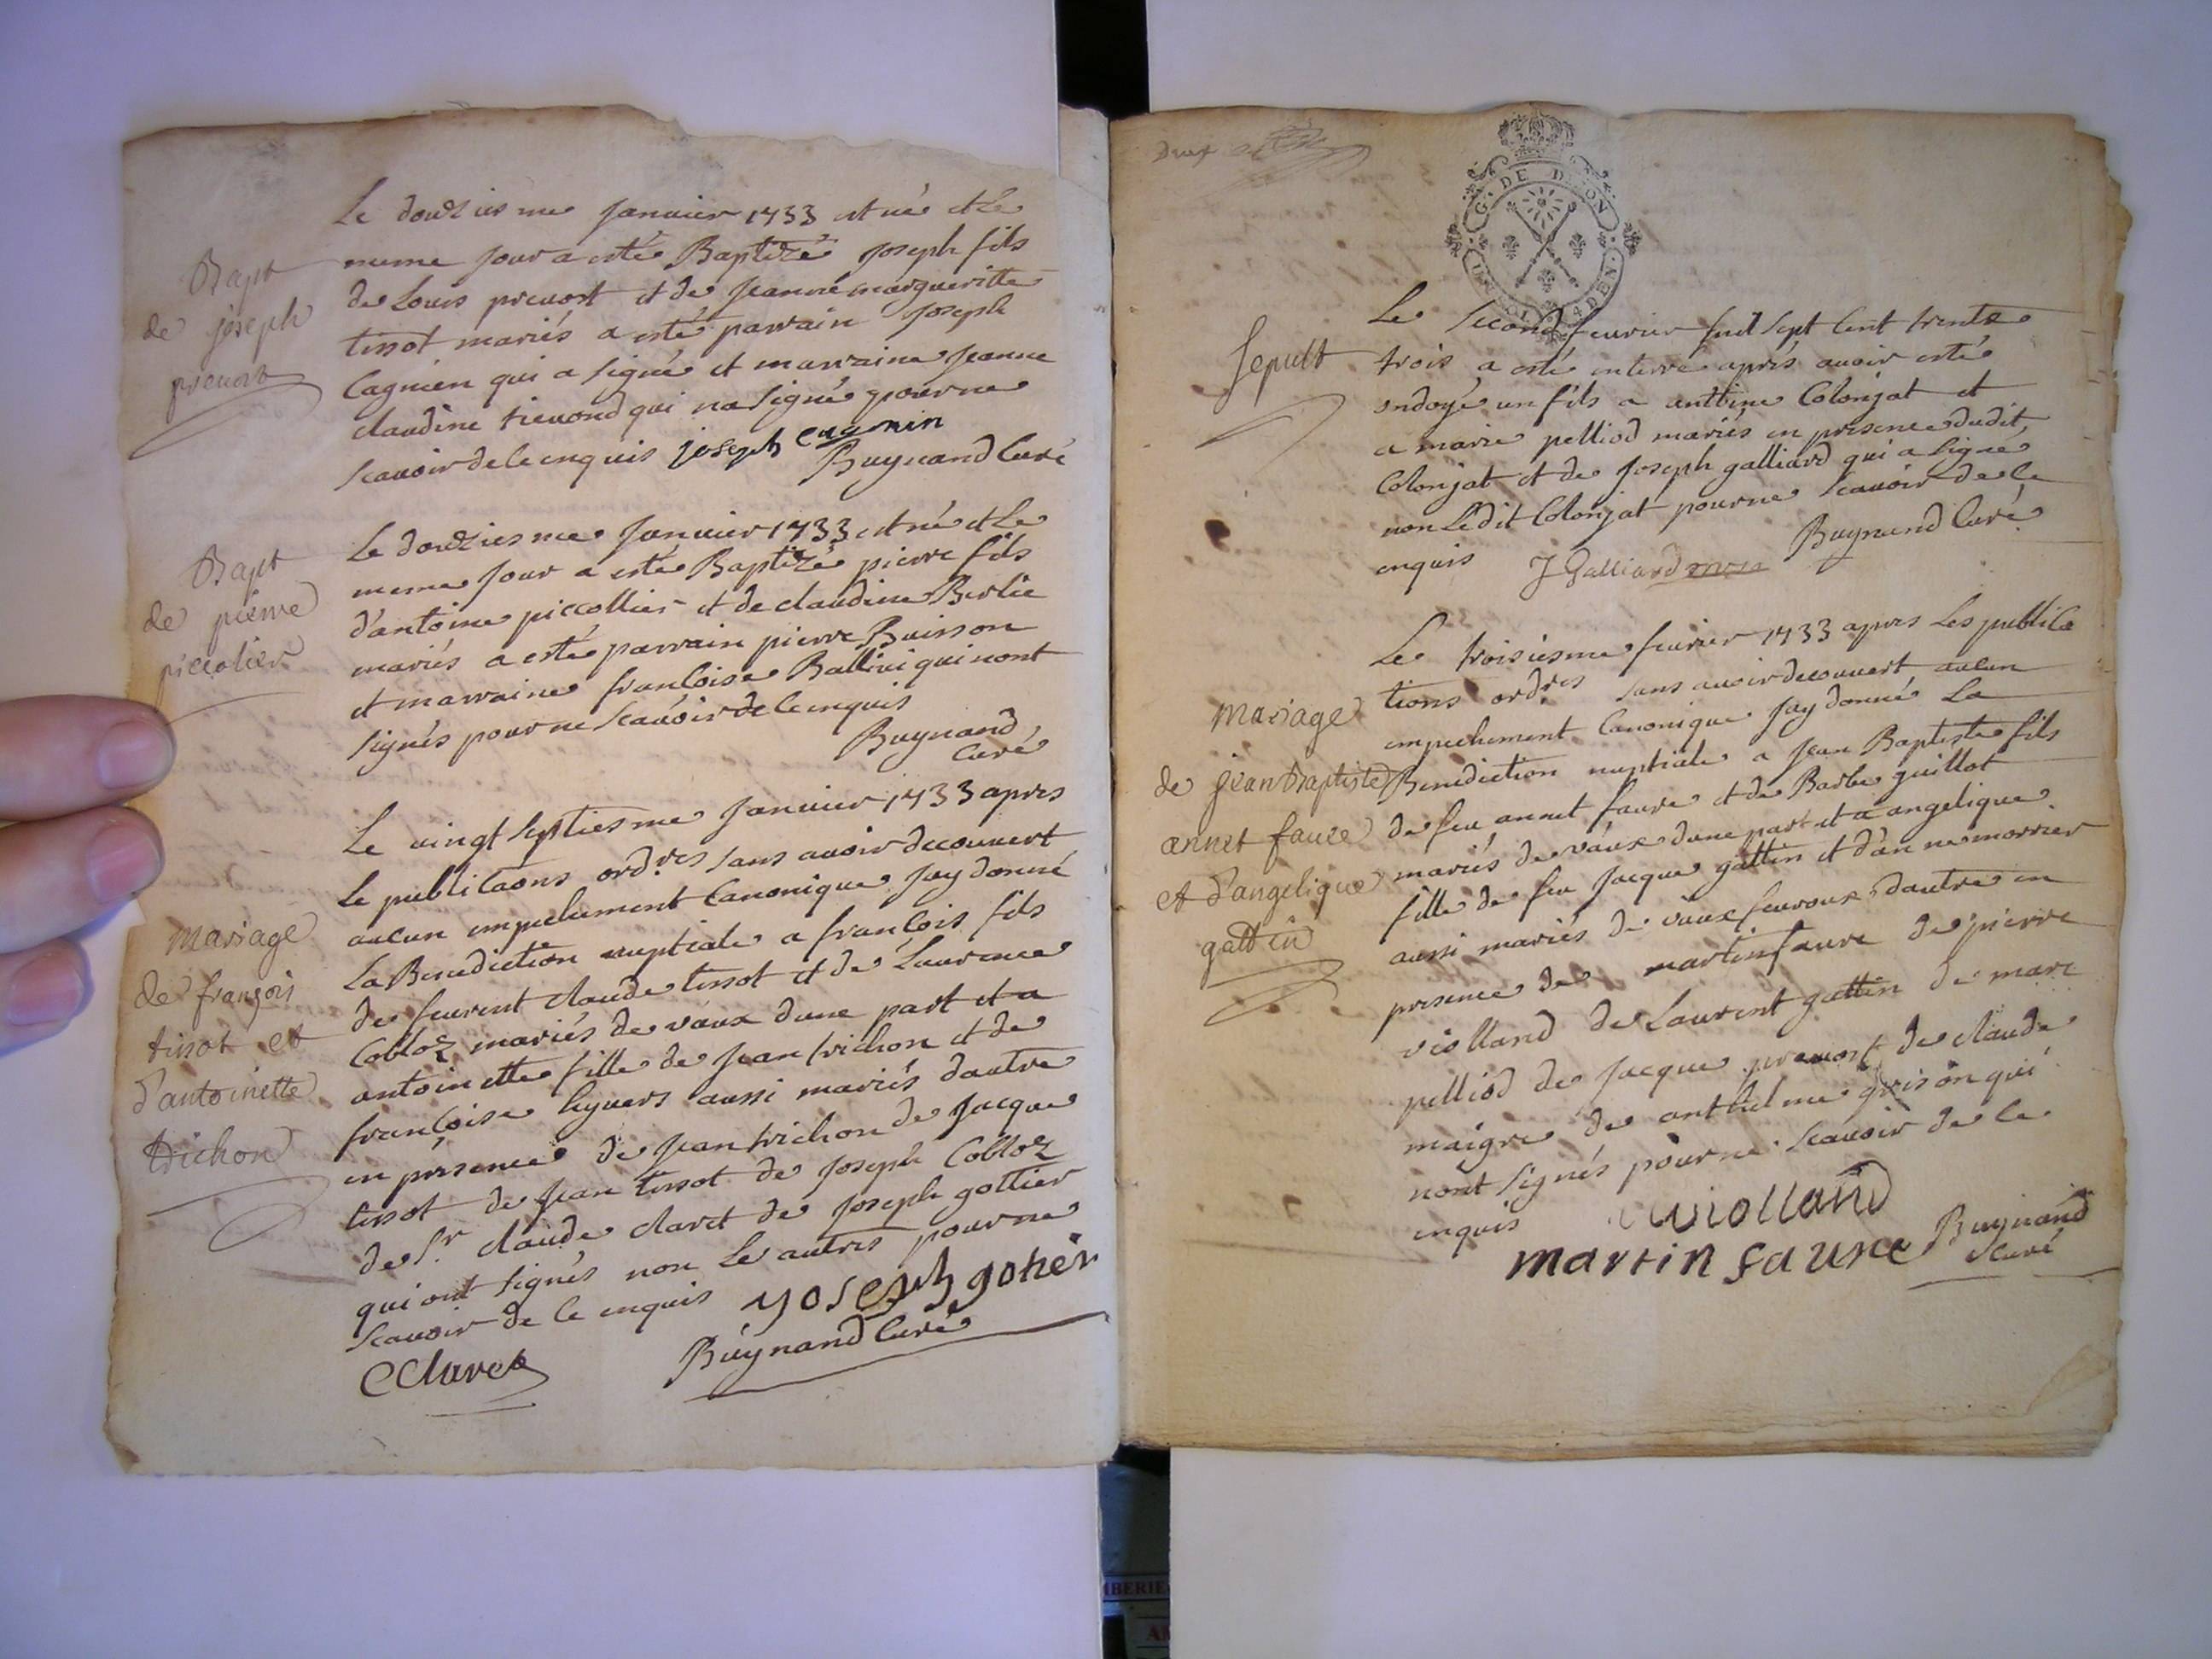 Le douziesme Janvier 1733 est né et le
meme jour a esté Baptizé Joseph fils
de Louis prevost et de Jeanne margueritte
tissot mariés a esté parrain Joseph
Cagnien qui a signé et marraine Jeanne
claudine trevond qui na signé pour ne
scavoir de le enquis joseph cagnin
Buynand Curé
Bapt
de joseph
prevost
Le douziesme Janvier 1733 est né et le
meme jour a esté Baptizé pierre fils
d'antoine piccollier et de claudine Berlie
mariés a esté parrain pierre Buisson
et marraine francoise Ballivi qui nont
signés pour ne scavoir de le enquis
Buynand
Curé
Bapt
de pierre
piccolier
Le vingt septiesme Janvier 1733 apres
le publicaons ord.res sans avoir decouvert
aucun empechement Canonique Jay donné
La Benediction nuptiale a francois fils
de feurent claude tissot et de Laurence
Cobloz mariés de vaux dune part et a
antoinette fille de Jean trichon et de
francoise heyvers aussi mariés dautre
en presence de Jean trichon de Jacque
tissot de Jean tissot de Joseph Cobloz
de Sr claude claret de Joseph gottier
qui ont signés non Le autres pour ne
scavoir de le enquis yoseph gotier
CClaret Buynand Curé
mariage
de françois
tissot et
d'antoinette
trichon
deux
G. DE DIJON
Le second fevrier mil sept Cent trente
trois a esté enterré aprés avoir esté
ondoyé un fils a anttine Colonjat et
a marie pelliod mariés en presence dudit
Colonjat et de Joseph galliard qui a signé
non Ledit Colonjat pour ne scavoir de le
enquis J Galliard Buynand Curé
Sepult
Le troisiesme fevrier 1733 apres Les publica
tions ord.res sans avoir decouvert aucun
empechement Canonique Jay donné La
Benediction nuptiale a Jean Baptiste fils
de feu annet faure et de Barbe guillot
mariés de vaux dune part et a angelique
fille de feu Jacque gattin et dan ne morrier
aussi mariés de vaux fevroux dautre en
presence de martin faure de pierre
violland de Laurent gattin de marc
pelliod de Jacque prevost de claude
maigre de anthelme grison qui
nont signés pour ne scavoir de le
enquis violland
martin faure Buynand
Curé
mariage
de jean baptiste
annet faure
et d'angelique
gattin